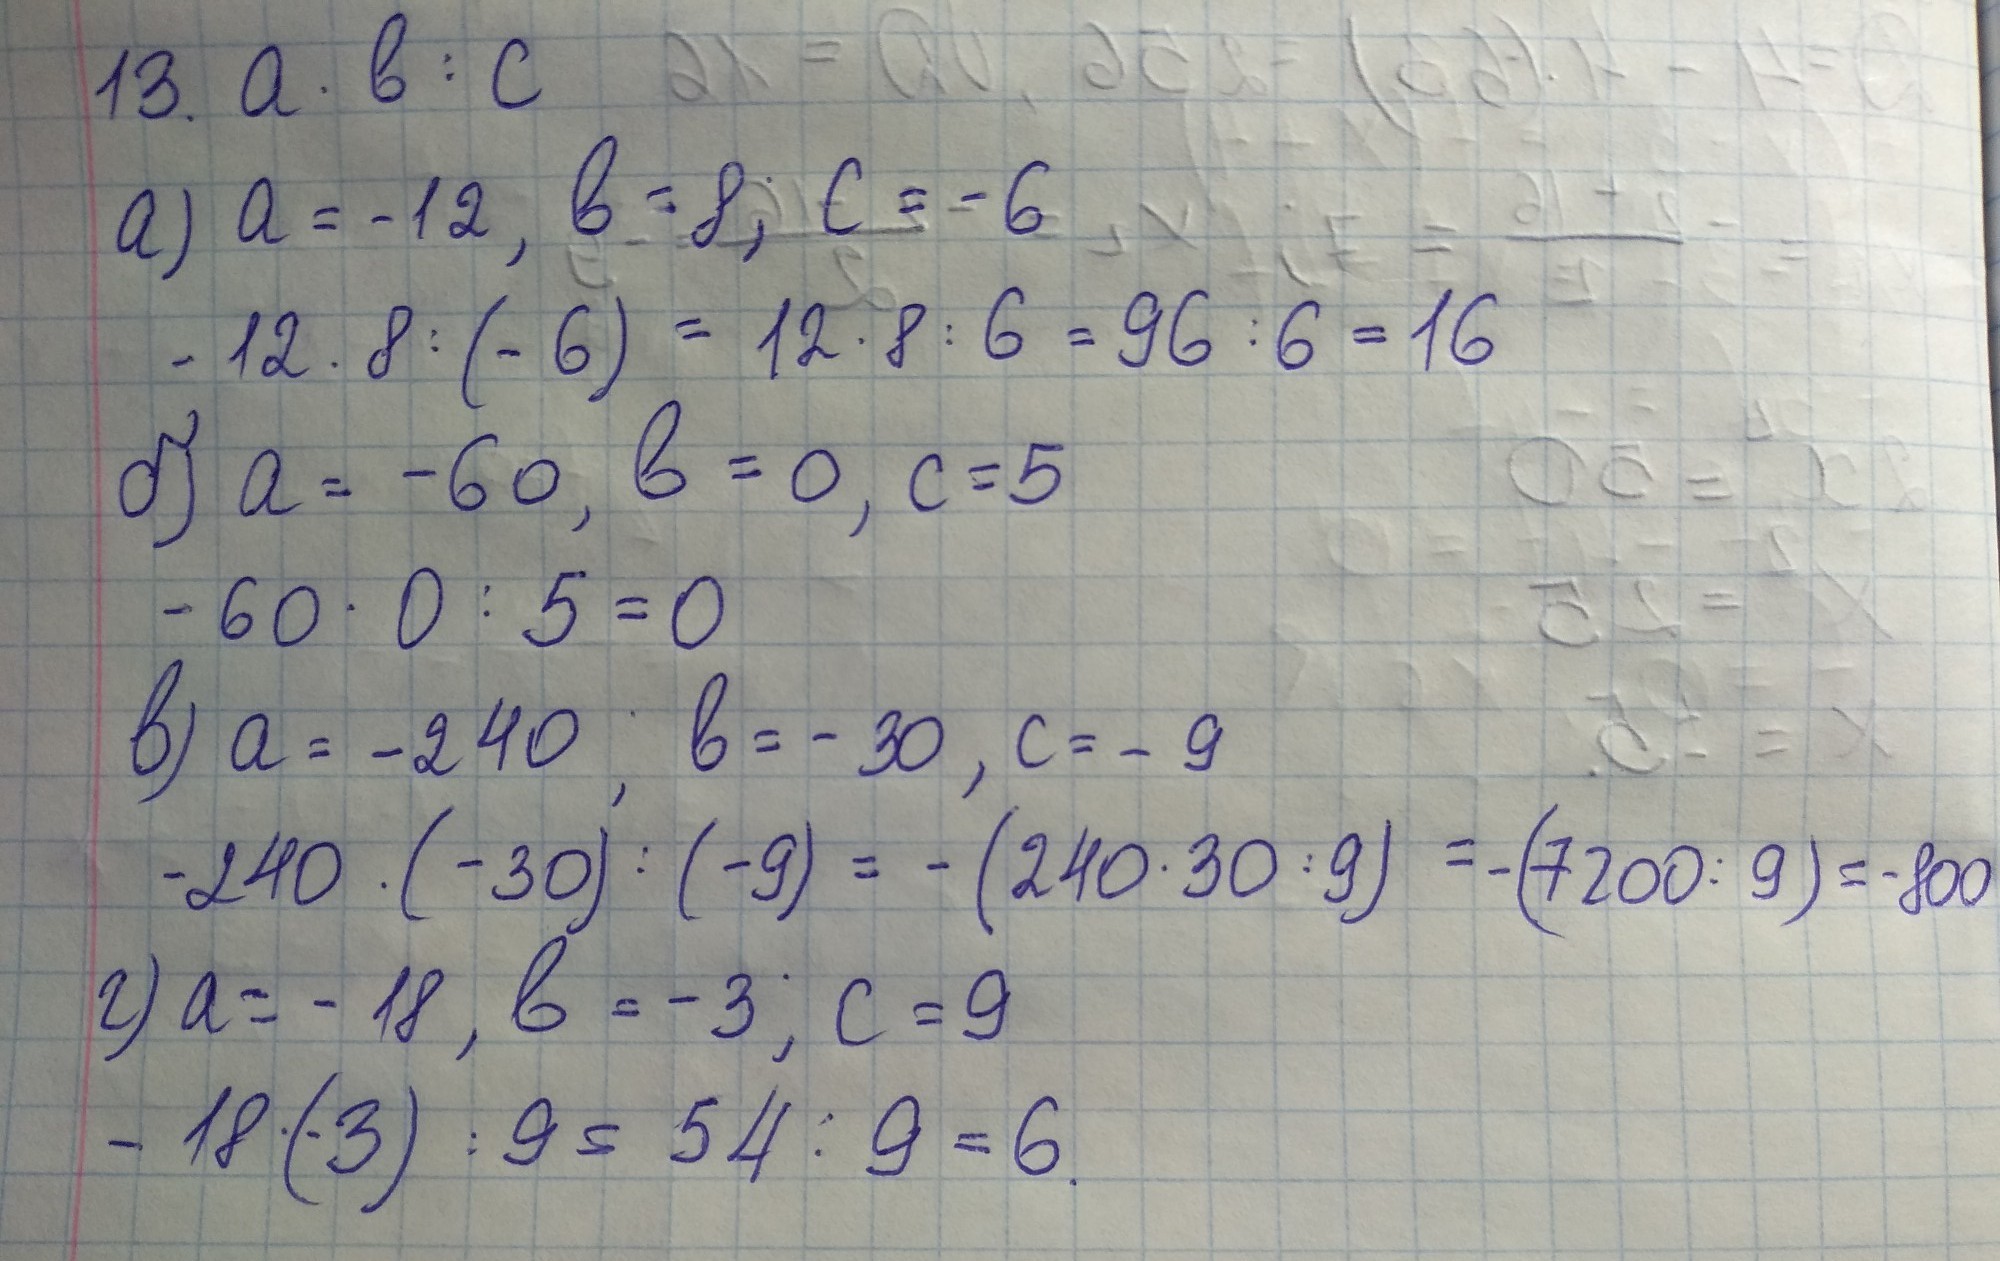 13. a · b : c
а) a = -12, b = 8; c = -6
-12 · 8 : (-6) = 12 · 8 : 6 = 96 : 6 = 16
б) a = -60, b = 0, c = 5
-60 · 0 : 5 = 0
в) a = -240; b = -30, c = -9
-240 · (-30) : (-9) = -(240 · 30 : 9) = -(7200 : 9) = -800
г) a = -18, b = -3; c = 9
-18 · (-3) : 9 = 54 : 9 = 6.